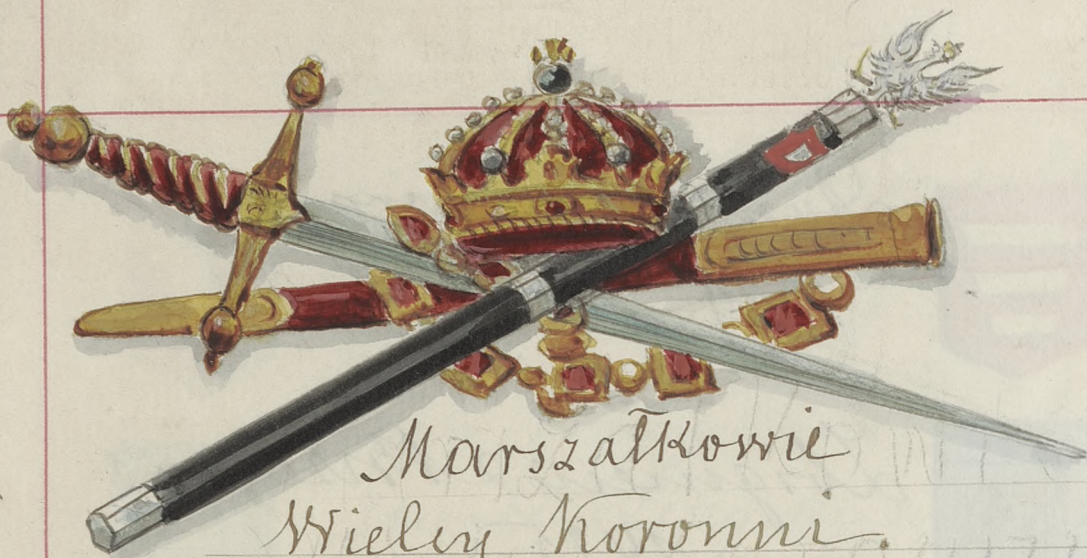 Marszałkowie
Wielcy Koronni.